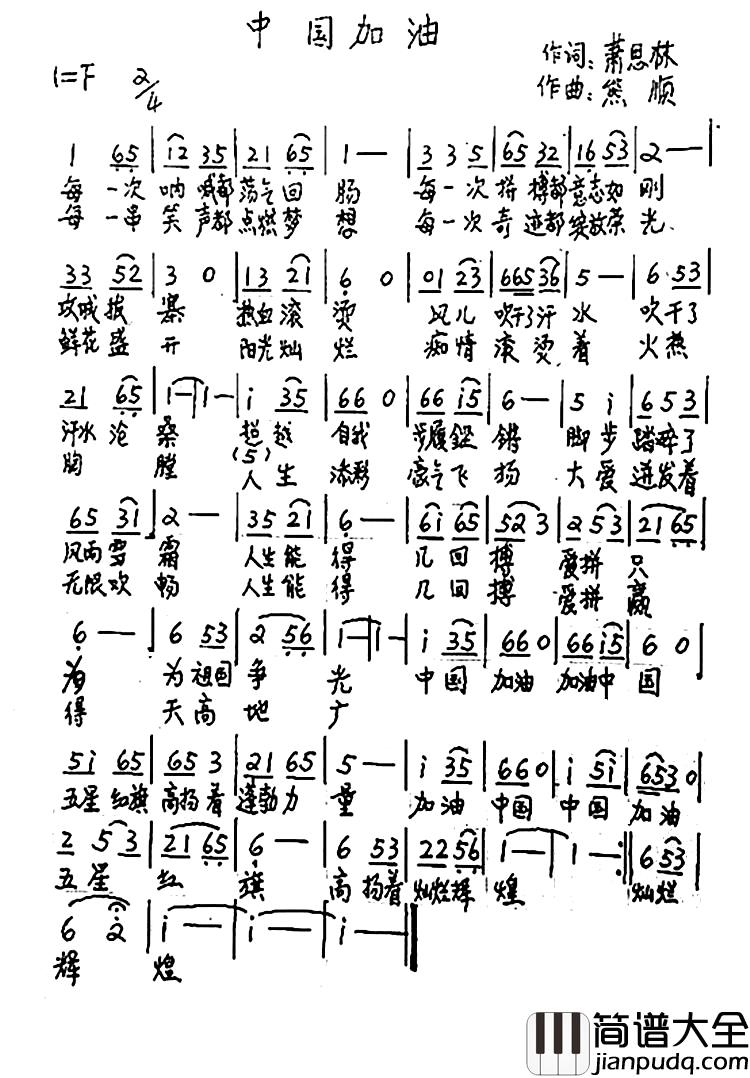 中国加油
作词：萧思林
1=F 2/4 作曲：熊顺
1 65 | 12 35 | 21 65 | 1 — | 3 3 5 | 65 32 | 16 53 | 2 — |
每一次呐喊都荡气回肠 每一次拼搏都意志如刚
每一串笑声都点燃梦想 每一次奇迹都绽放荣光
33 52 | 3 0 | 13 21 | 6 0 | 01 23 | 665 36 | 5 — | 6 53 |
攻城拔寨 热血滚烫 风儿吹干了汗水 吹干了
鲜花盛开 阳光灿烂 痴情滚烫着 火热
21 65 | 1 — | 1 — | i 35 | 66 0 | 66 i5 | 6 — | 5 i | 6 5 3 |
汗水沧桑 超越自我 步履铿锵 脚步踏碎了
胸膛 (5) 人生添彩 豪气飞扬 大爱迸发着
65 31 | 2 — | 35 21 | 6 — | 6i 65 | 52 3 | 2 53 | 21 65 |
风雨雪霜 人生能得几回搏 爱拼只
无限欢畅 人生能得几回搏 爱拼赢
6 — | 6 53 | 2 56 | 1 — | 1 — | i 35 | 66 0 | 66 i5 | 6 0 |
为 为祖国争光 中国加油 加油中国
得 天高地广
5i 65 | 65 3 | 21 65 | 5 — | i 35 | 66 0 | i 5i | 653 0 |
五星红旗高扬着蓬勃力量 加油中国 中国加油
2 53 | 21 65 | 6 — | 6 53 | 22 56 | i — | i — :| 6 53 |
五星红旗 高扬着灿烂辉煌 灿烂
6 2 | i — | i — | i — ||
辉煌
简谱大全
jianpudq.com